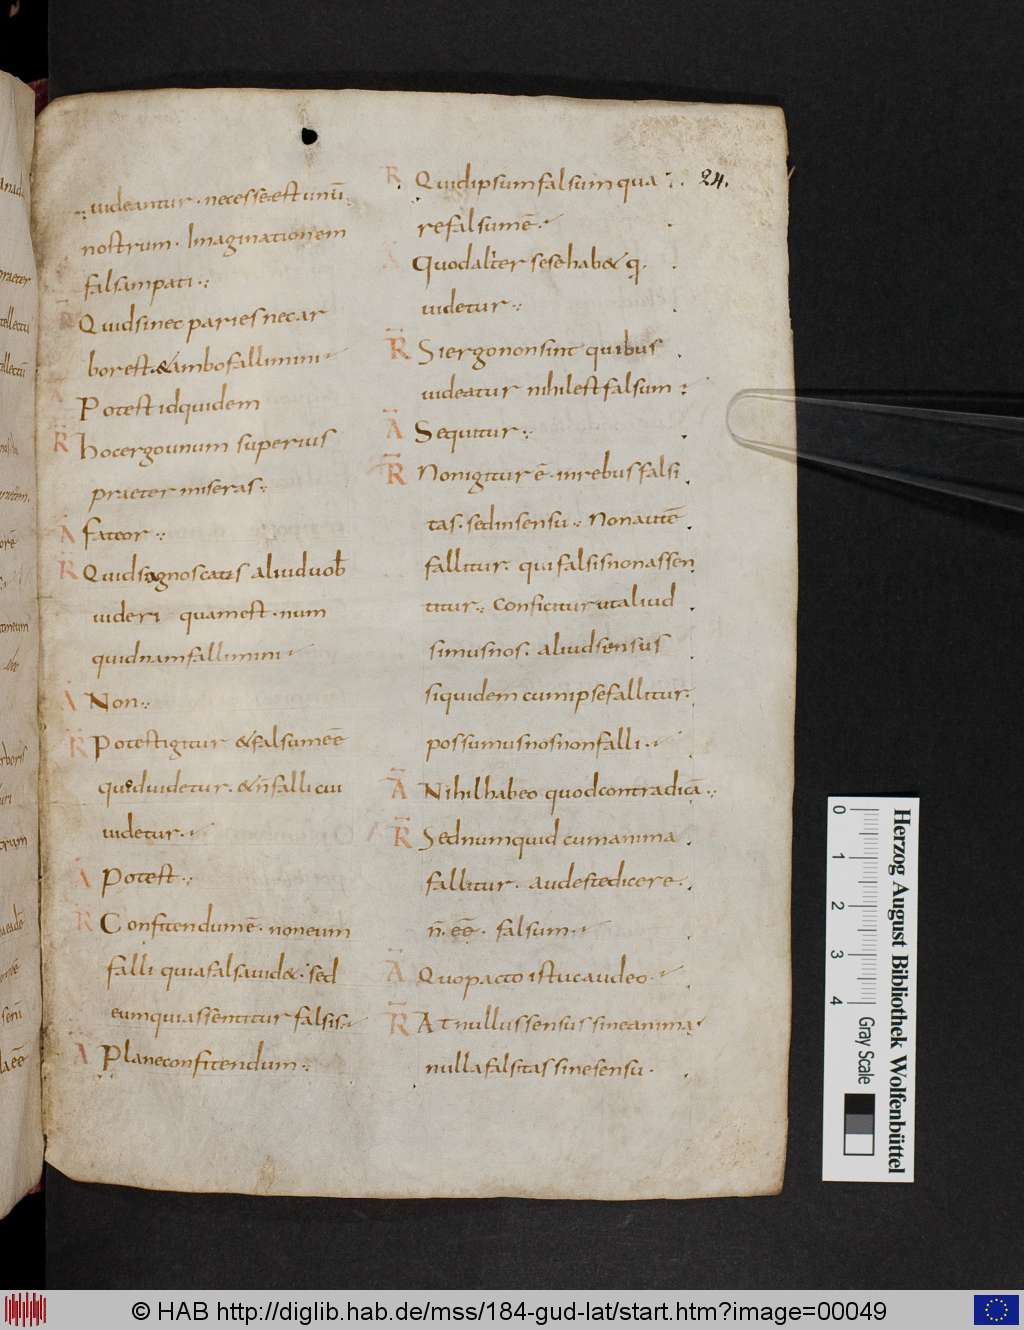 uideantur · necesse est unū
nostrum · Imaginationem
falsam pati ·:
R Quid si nec paries nec ar
bor est · & ambo fallimini
A Potest id quidem
R hoc ergo unum superius
praeter miseras ·:
A fateor ·:
R Quid si agnoscatis aliud uob
uideri quam est · num
quidnam fallimini
A Non ·:
R Potest igitur & falsum eē
quod uidetur · & n̄ falli cui
uidetur ·
A Potest ·:
R Confitendum ē · non eum
falli qui a falsa uid& · sed
eum qui assentitur falsis ·
A Plane confitendum ·:
24.
R Quid ipsum falsum qua
re falsum ē ·
Quod aliter sese hab& q̄
uidetur ·:
R Si ergo non sint quibus
uideatur nihil est falsum :
A Sequitur ·:
R Non igitur ē · in rebus falsi
tas · sed in sensu ·: Non autē
fallitur · qui falsis non assen
titur ·: conficitur ut aliud
simus nos · aliud sensus
siquidem cum ipse fallitur ·
possumus nos non falli ·
A Nihil habeo quod contradicā ·:
R Sed numquid cum anima
fallitur · audes te dicere ·
n̄ · eē · falsum ·
A Quo pacto istuc audeo ·
R At nullus sensus sine anima
nulla falsitas sine sensu ·
0 1 2 3 4
Gray Scale
Herzog August Bibliothek Wolfenbüttel
© HAB http://diglib.hab.de/mss/184-gud-lat/start.htm?image=00049